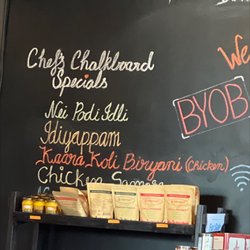 Chef's Chalkboard
Specials
Nei Podi Idli
Idiyappam
Kaara Kozi Biryani (Chicken)
Chicken Samosa
We
BYOB